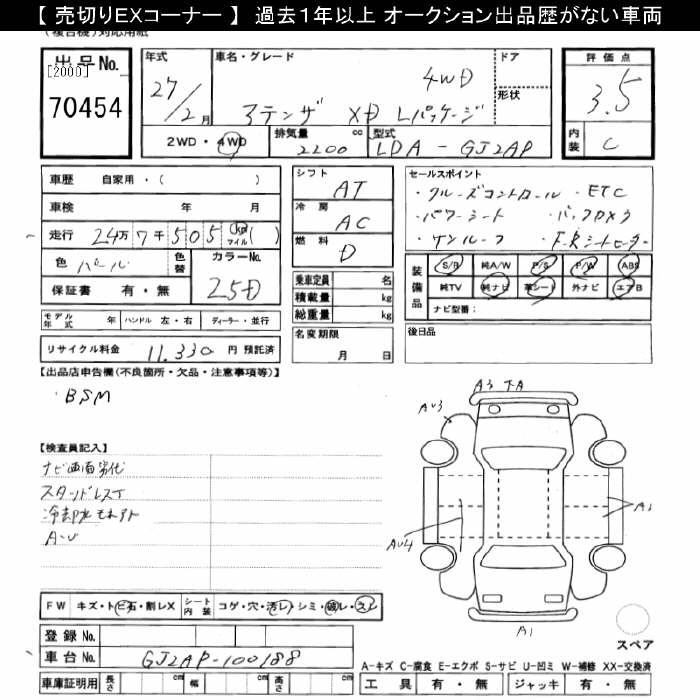 【 売切りEXコーナー 】 過去1年以上 オークション出品歴がない車両
(複合機)対応用紙
出品No.
[2000]
70454
年式
27/2月
車名・グレード
4WD
アテンザ XD Lパッケージ
ドア
形状
評価点
3.5
内装
C
2WD・4WD
排気量
2200 cc
型式
LDA-GJ2AP
車歴 自家用・( )
車検 年 月
走行 24万7千505 km マイル ( )
色 パール
色替
カラーNo.
25D
保証書 有・無
シフト
AT
冷房
AC
燃料
D
乗車定員 名
積載量 kg
総重量 kg
名変期限
月 日
セールスポイント
・クルーズコントロール ・ETC
・パワーシート ・バックカメラ
・サンルーフ ・F.Rシートヒーター
装備品
S/R 純A/W P/S P/W ABS
純TV 純ナビ 革シート 外ナビ エアB
ナビ型番:
後日品
モデル年式 年 ハンドル 左・右 ディーラー・並行
リサイクル料金 11,330 円 預託済
【出品店申告欄(不良箇所・欠品・注意事項等)】
・BSM
【検査員記入】
ナビ画面劣化
スタッドレスT
冷却水モレアト
A-U
A3
AU3
AU4
A1
FW キズ・トビ石・割レX
シート内装 コゲ・穴・汚レ・シミ・破レ・スレ
登録No.
車台No. GJ2AP-100188
車庫証明用 長さ cm 幅 cm 高さ cm
スペア
A-キズ C-腐食 E-エクボ S-サビ U-凹ミ W-補修 XX-交換済
工具 有・無 ジャッキ 有・無